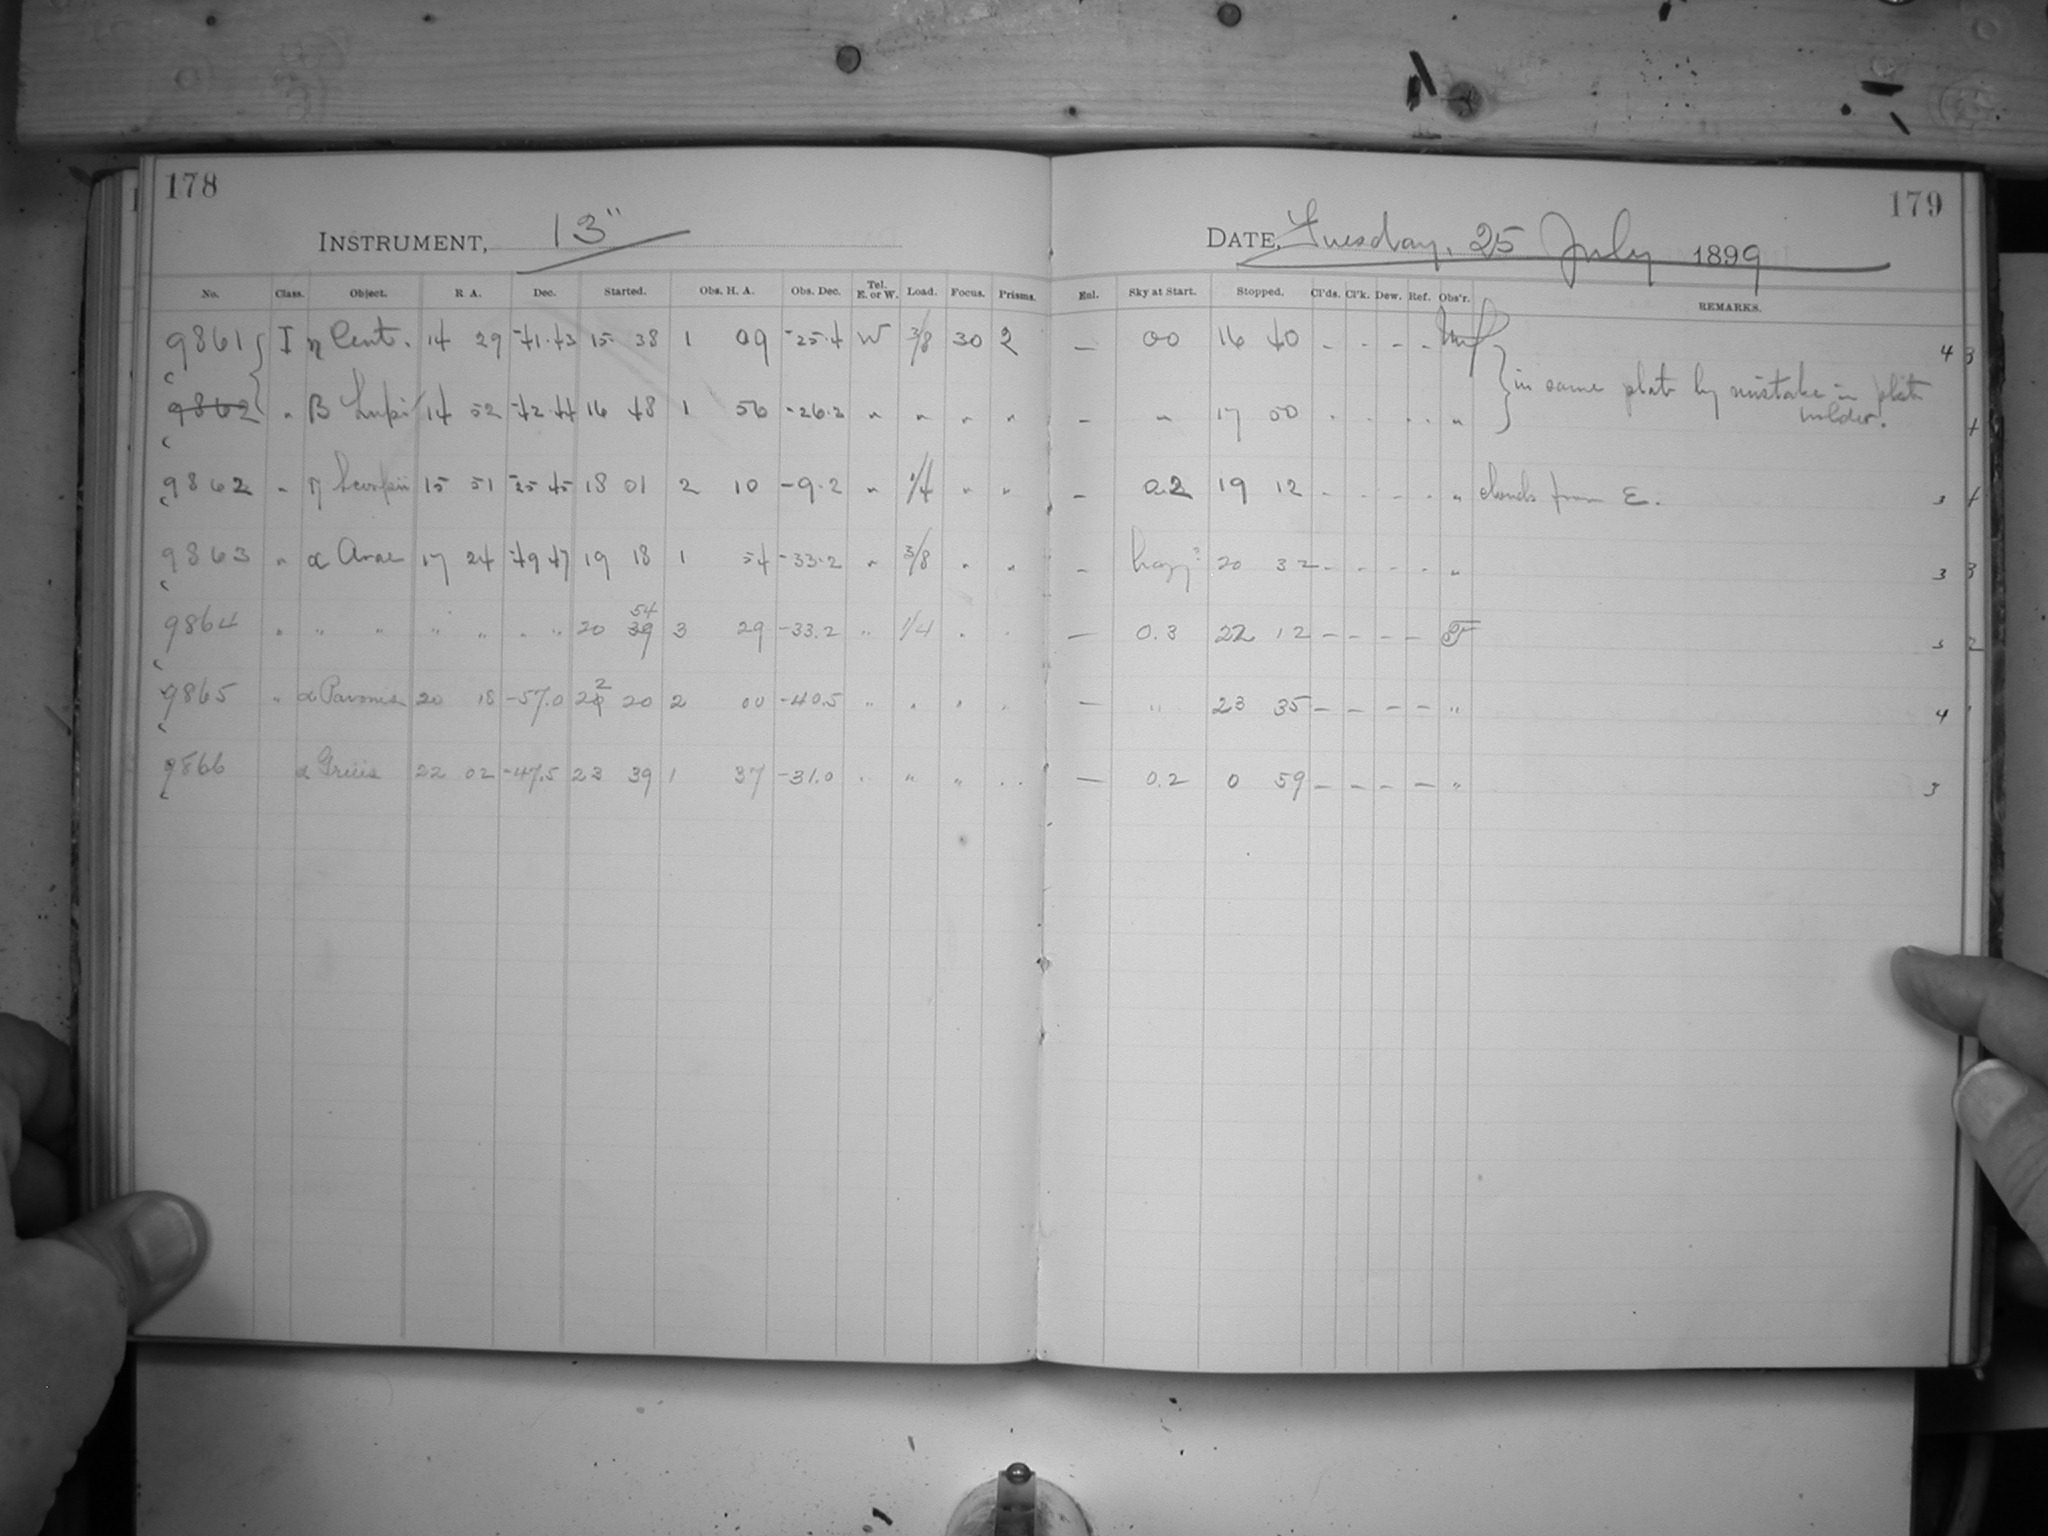 178
INSTRUMENT, 13"
No. Class. Object. R A. Dec. Started. Obs. H. A. Obs. Dec. Tel. E. or W. Load. Focus. Prisms.
9861 I η Cent. 14 29 -41.43 15 38 1 09 -25.4 W 3/8 30 2
9862 " β Lupi 14 52 -42 44 16 48 1 56 -26.2 " " " "
9862 " π Scorpii 15 51 -25 45 18 01 2 10 -9.2 " 1/4 " "
9863 " α Arae 17 24 -49 47 19 18 1 54 -33.2 " 3/8 " "
9864 " " " " " " " 20 39 54 3 29 -33.2 " 1/4 " "
9865 " α Pavonis 20 18 -57.0 22 20 2 00 -40.5 " " " "
9866 α Gruis 22 02 -47.5 23 39 1 37 -31.0 " " " "
179
DATE, Tuesday, 25 July 1899
Enl. Sky at Start. Stopped. Cl'ds. Cl'k. Dew. Ref. Obs'r. REMARKS.
— 00 16 40 - - - - 4 3
in same plate by mistake in plate
holder.
- " 17 50 - - - - " 4
- 0.2 19 12 - - - - " clouds from E. 3 4
- hazy? 20 32 - - - - " 3 3
— 0.3 22 12 - - - - 3 2
— " 23 35 - - - - " 4
— 0.2 0 59 - - - - " 3